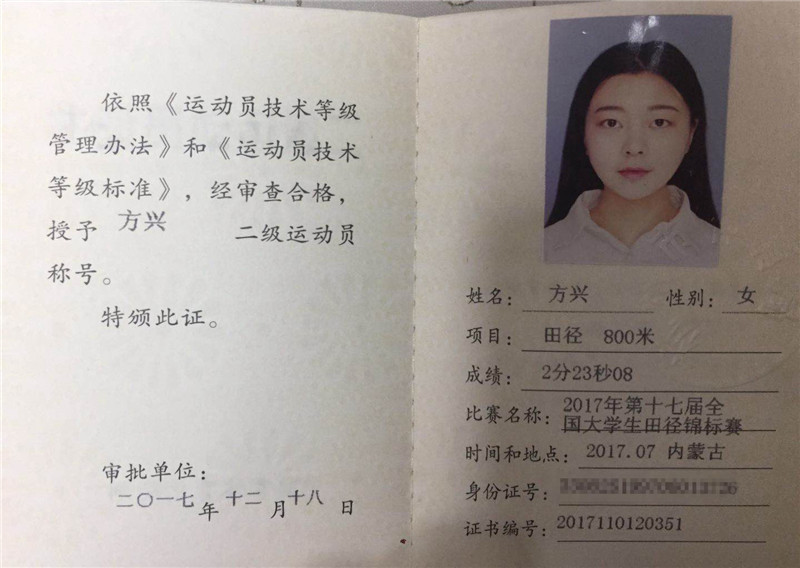 依照《运动员技术等级
管理办法》和《运动员技术
等级标准》，经审查合格，
授予 方兴 二级运动员
称号。
特颁此证。
审批单位：
二〇一七年 十二月十八日
姓名： 方兴 性别： 女
项目： 田径 800米
成绩： 2分23秒08
比赛名称： 2017年第十七届全
国大学生田径锦标赛
时间和地点： 2017.07 内蒙古
身份证号：
证书编号： 2017110120351